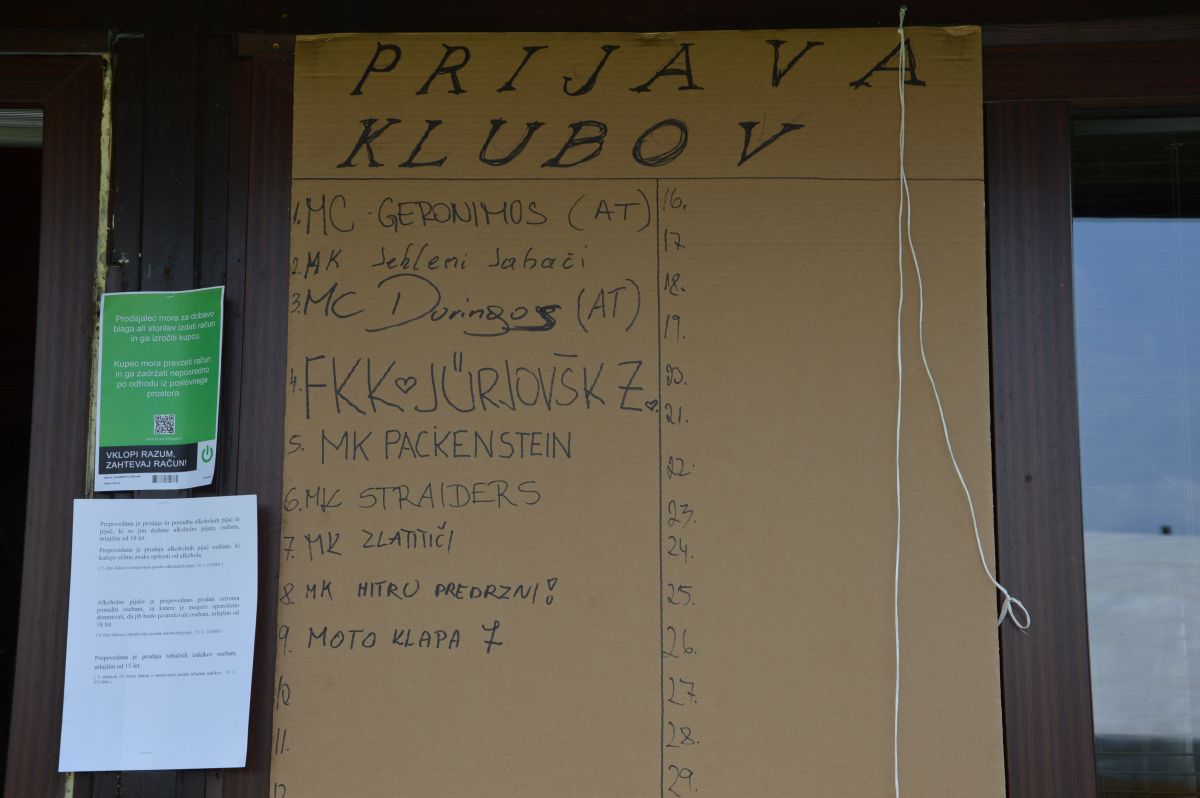 PRIJAVA
KLUBOV
1. MC GERONIMOS (AT)
2. MK Jekleni Jahači
3. MC Duringos (AT)
4. FKK♡JÜRJOVŠKZ.♡
5. MK PACKENSTEIN
6. MK STRAIDERS
7. MK ZLATITIČI
8. MK HITRU PREDRZNI!
9. MOTO KLAPA 7
10
11.
12
16.
17.
18.
19.
20.
21.
22.
23.
24.
25.
26.
27.
28.
29.
Prodajalec mora za dobavo
blaga ali storitev izdati račun
in ga izročiti kupcu.
Kupec mora prevzeti račun
in ga zadržati neposredno
po odhodu iz poslovnega
prostora.
VKLOPI RAZUM,
ZAHTEVAJ RAČUN!
Prepovedana je prodaja in ponudba alkoholnih pijač in
pijač, ki so jim dodane alkoholne pijače, osebam,
mlajšim od 18 let.
Prepovedana je prodaja alkoholnih pijač osebam, ki
kažejo očitne znake opitosti od alkohola.
Alkoholne pijače je prepovedano prodati oziroma
ponuditi osebam, za katere je mogoče upravičeno
domnevati, da jih bodo posredovale osebam, mlajšim od
18 let.
Prepovedana je prodaja tobačnih izdelkov osebam,
mlajšim od 15 let.